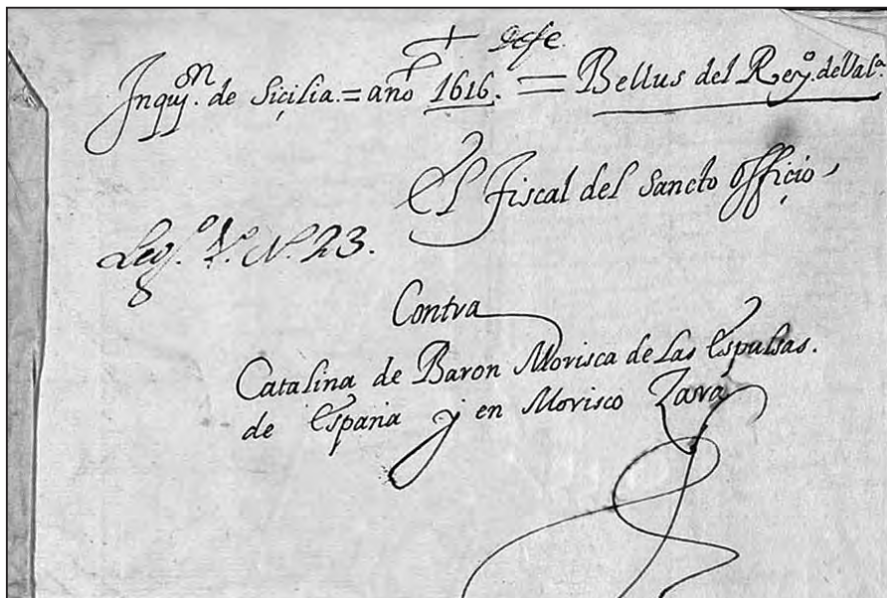 + de fe
Inqu.ᵒⁿ de Siçilia. = año 1616. = Bellus del Rey.ᵒ de Val.ᵃ
El Fiscal del Sancto Offiçio
Leg.ᵒ N.ᵒ 23.
Contra
Catalina de Baron Morisca de las espulsas.
de españa y en Morisco Zara